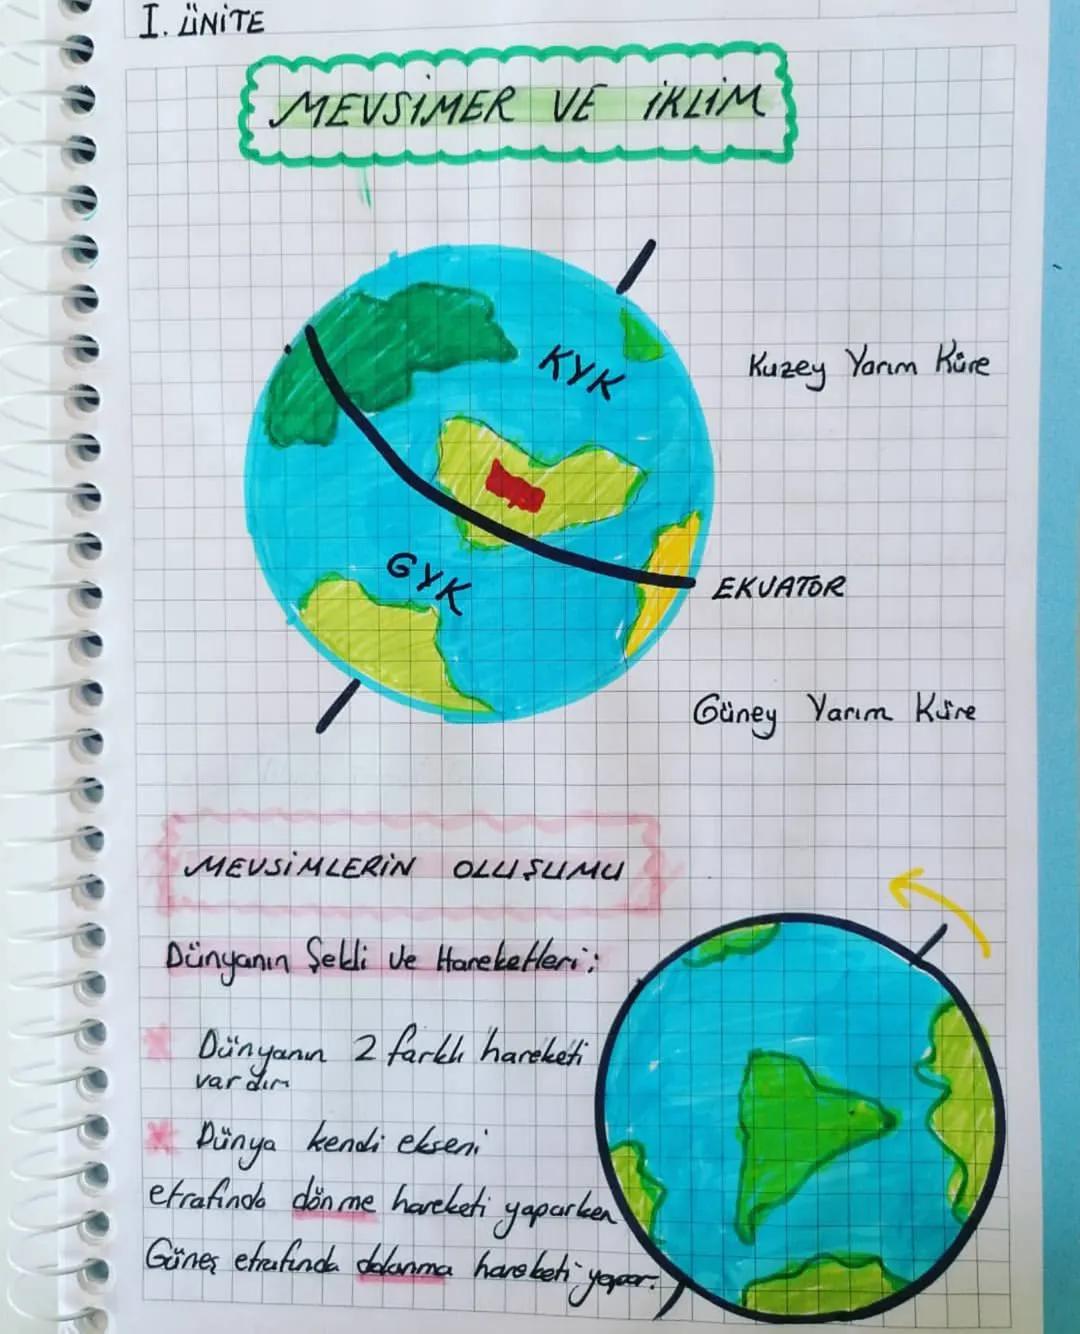 I. ÜNİTE
MEVSİMER VE İKLİM
KYK
Kuzey Yarım Küre
GYK
EKVATOR
Güney Yarım Küre
MEVSİMLERİN OLUŞUMU
Dünyanın Şekli ve Hareketleri:
Dünyanın 2 farklı hareketi
vardır
Dünya kendi ekseni
etrafında dönme hareketi yaparken
Güneş etrafında dolanma hareketi yapar.